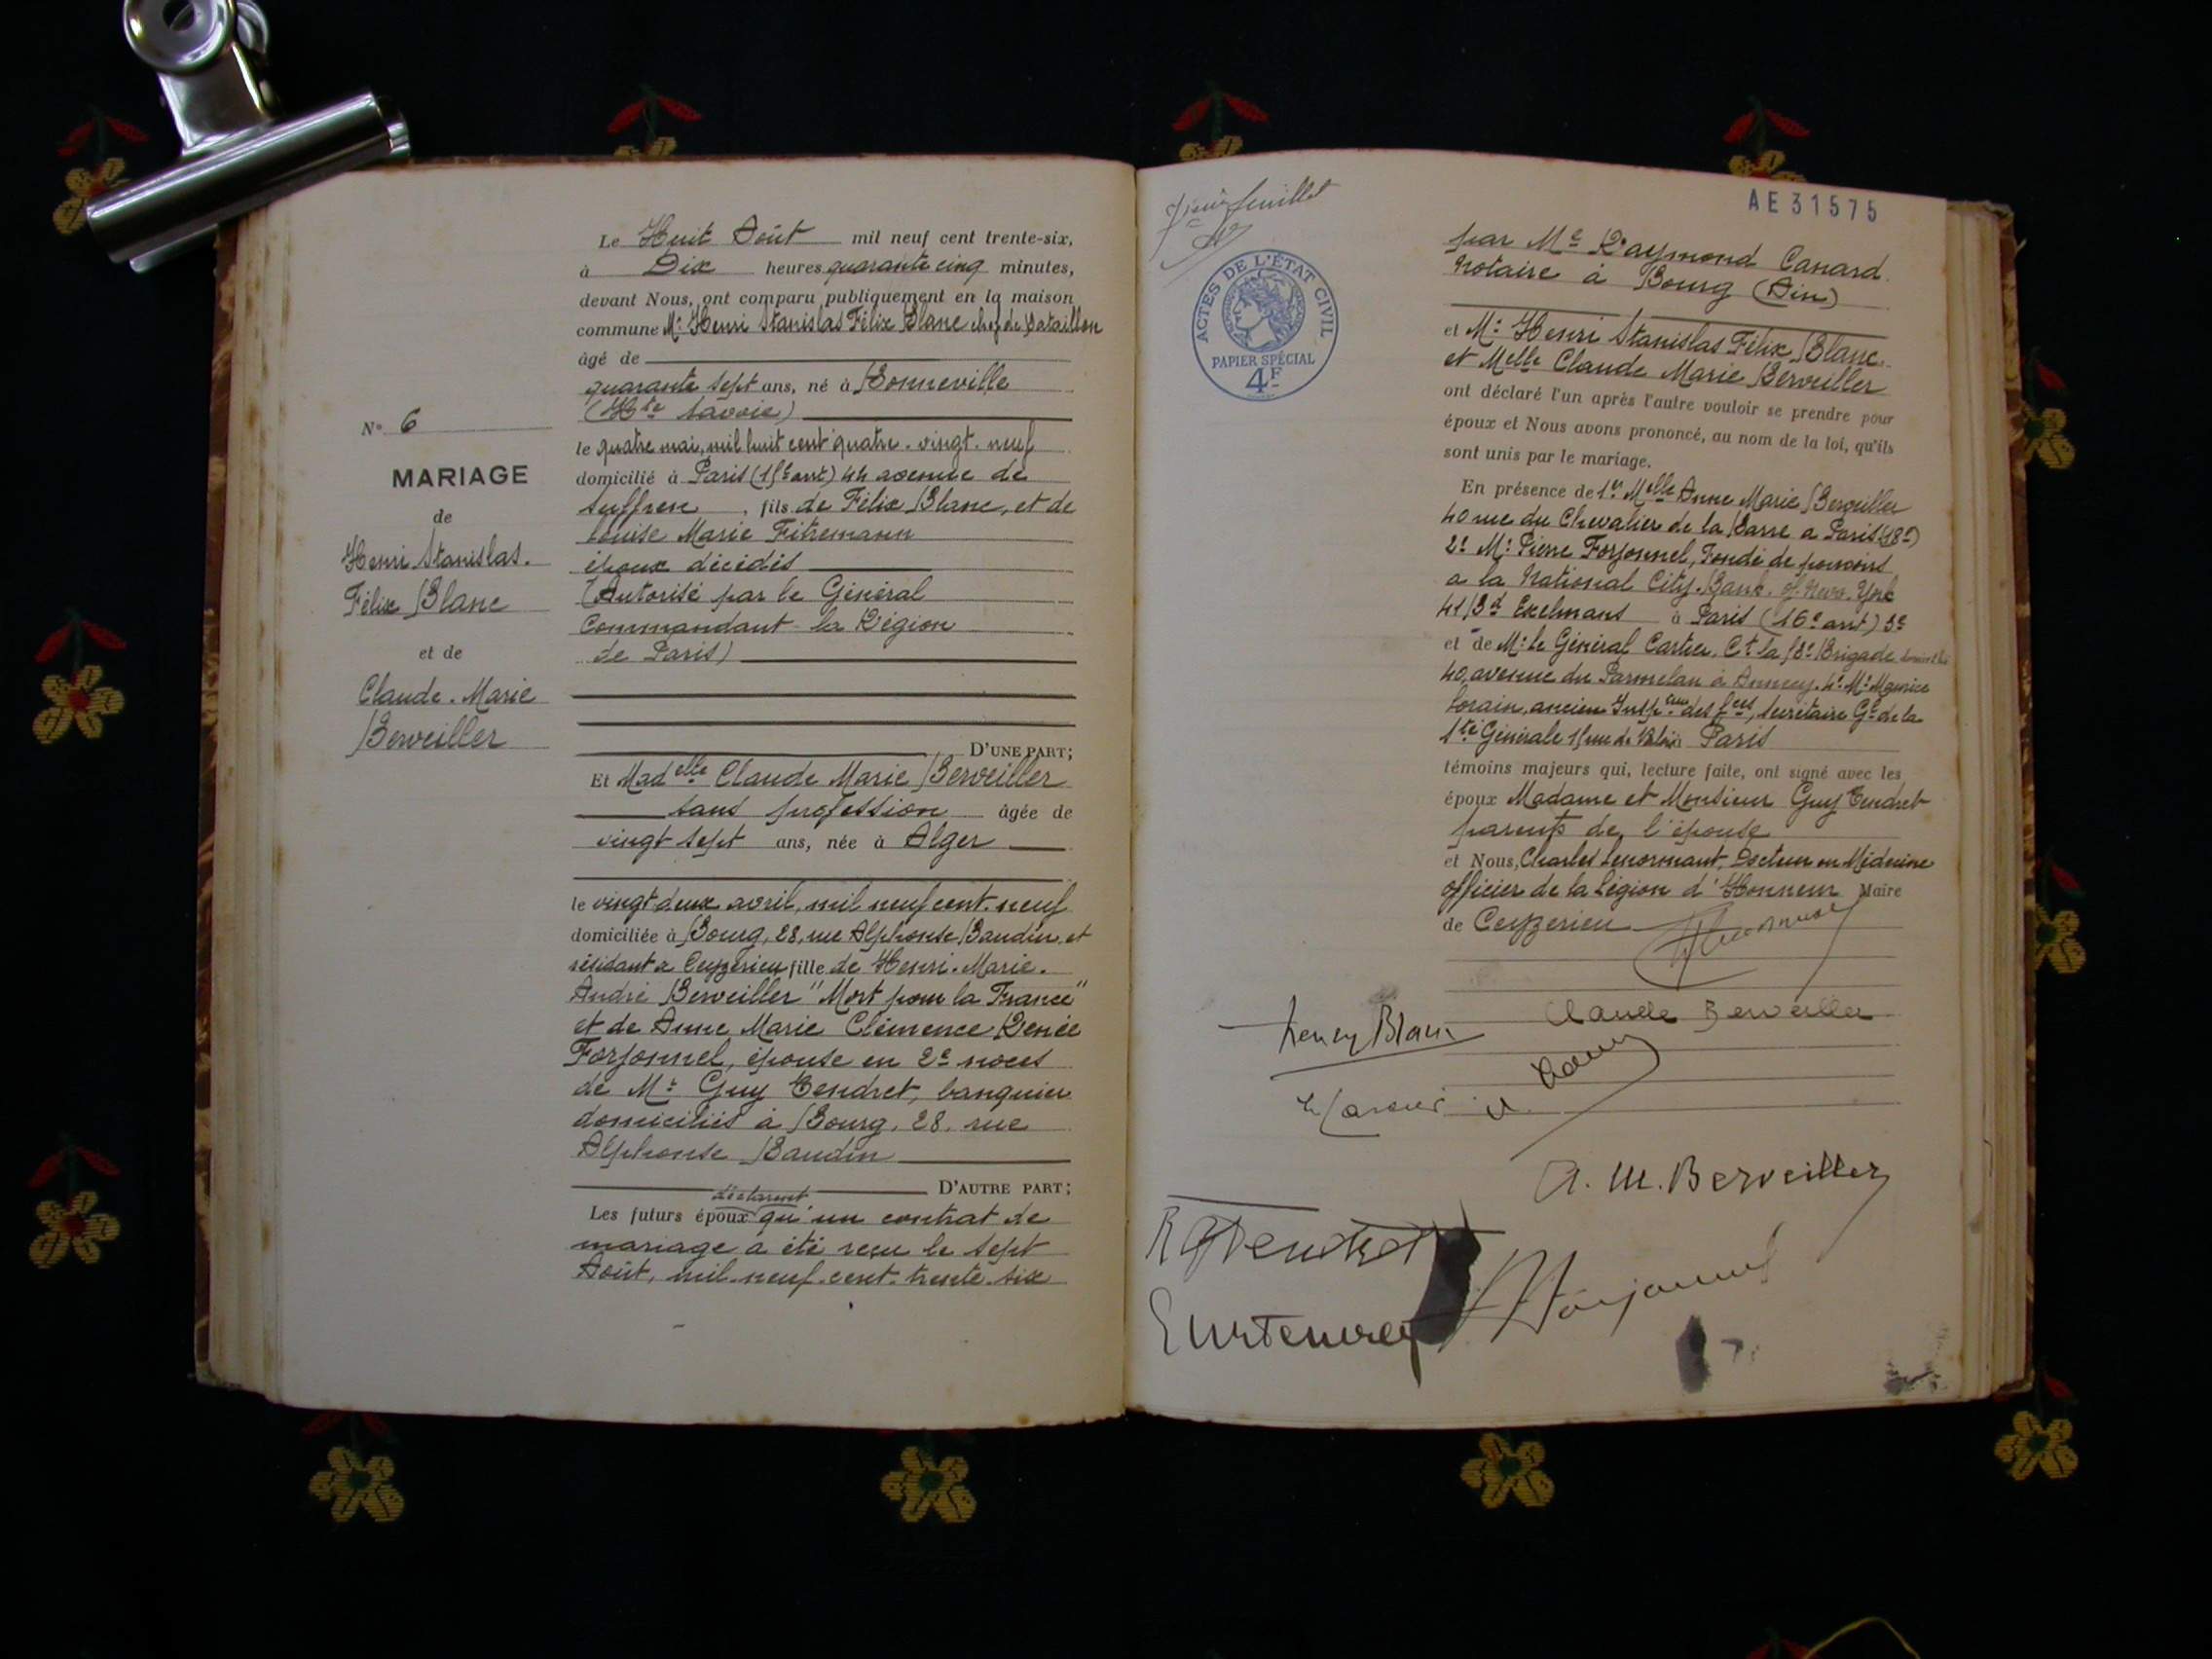 N° 6
MARIAGE
de
Henri Stanislas.
Félix Blanc
et de
Claude. Marie
Berveiller
Le Huit Août mil neuf cent trente-six,
à Dix heures quarante cinq minutes,
devant Nous, ont comparu publiquement en la maison
commune Mr Henri Stanislas Félix Blanc chef de Bataillon
âgé de
quarante sept ans, né à Bonneville
(Hte Savoie)
le quatre mai, mil huit cent quatre-vingt-neuf
domicilié à Paris (15e arrt) 44 avenue de
Suffren, fils de Félix Blanc, et de
Louise Marie
époux décédés
(Autorisé par le Général
Commandant la Région
de Paris)
D'UNE PART;
Et Madelle Claude Marie Berveiller
sans profession âgée de
vingt sept ans, née à Alger
le vingt deux avril, mil neuf cent neuf
domiciliée à Bourg, 28, rue Alphonse Baudin, et
résidant à Ceyzerieu fille de Henri. Marie.
André Berveiller "Mort pour la France"
et de Anne Marie Clémence Renée
Forjonnel, épouse en 2e noces
de Mr Guy Tendret, banquier
domiciliés à Bourg, 28, rue
Alphonse Baudin
D'AUTRE PART;
déclarent
Les futurs époux qu'un contrat de
mariage a été reçu le sept
Août, mil neuf cent trente six
feuillet
ACTES DE L'ÉTAT CIVIL
PAPIER SPÉCIAL
4F
AE 31575
par Me Raymond Canard
Notaire à Bourg (Ain)
et Mr Henri Stanislas Félix Blanc.
et Melle Claude Marie Berveiller
ont déclaré l'un après l'autre vouloir se prendre pour
époux et Nous avons prononcé, au nom de la loi, qu'ils
sont unis par le mariage.
En présence de 1° Melle Anne Marie Berveiller
40 rue du Chevalier de la Barre a Paris (18e)
2° Mr Pierre Forjonnel, Fondé de pouvoirs
a la National City. Bank. of New. York
41 Bd Exelmans à Paris (16e arrt) 3°
et de Mr le Général Cartier, Ct la Brigade
40, avenue du Parmelan à Annecy. 4° Mr Maurice
Lorain, ancien des Fces, Secrétaire Gl de la
Sté Générale rue de Valois Paris
témoins majeurs qui, lecture faite, ont signé avec les
époux Madame et Monsieur Guy Tendret
parents de l'épouse
et Nous, Charles Lenormant, Docteur en Médecine
officier de la Légion d'Honneur Maire
de Ceyzerieu
Claude Berveiller
Henry Blanc
A. M. Berveiller
Forjonnel